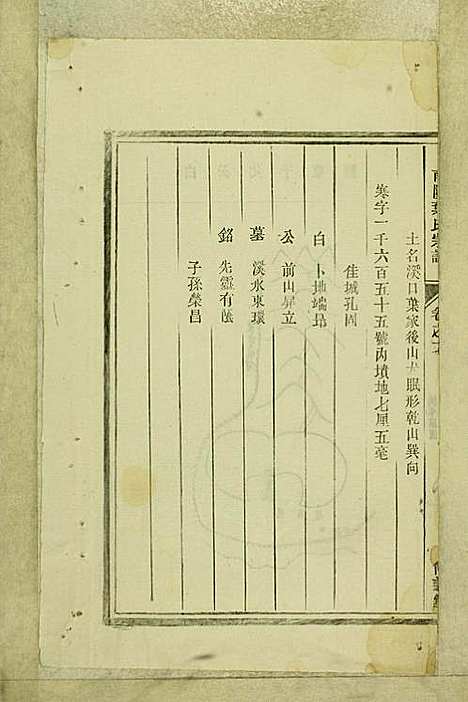 南陽葉氏宗譜
土名溪口葉家後山犬眠形乾山巽向
寒字一千六百五十五號內墳地七厘五毫
佳城孔固
白 卜地端昂
公 前山屏立
墓 溪水東環
銘 先靈有蔭
子孫榮昌